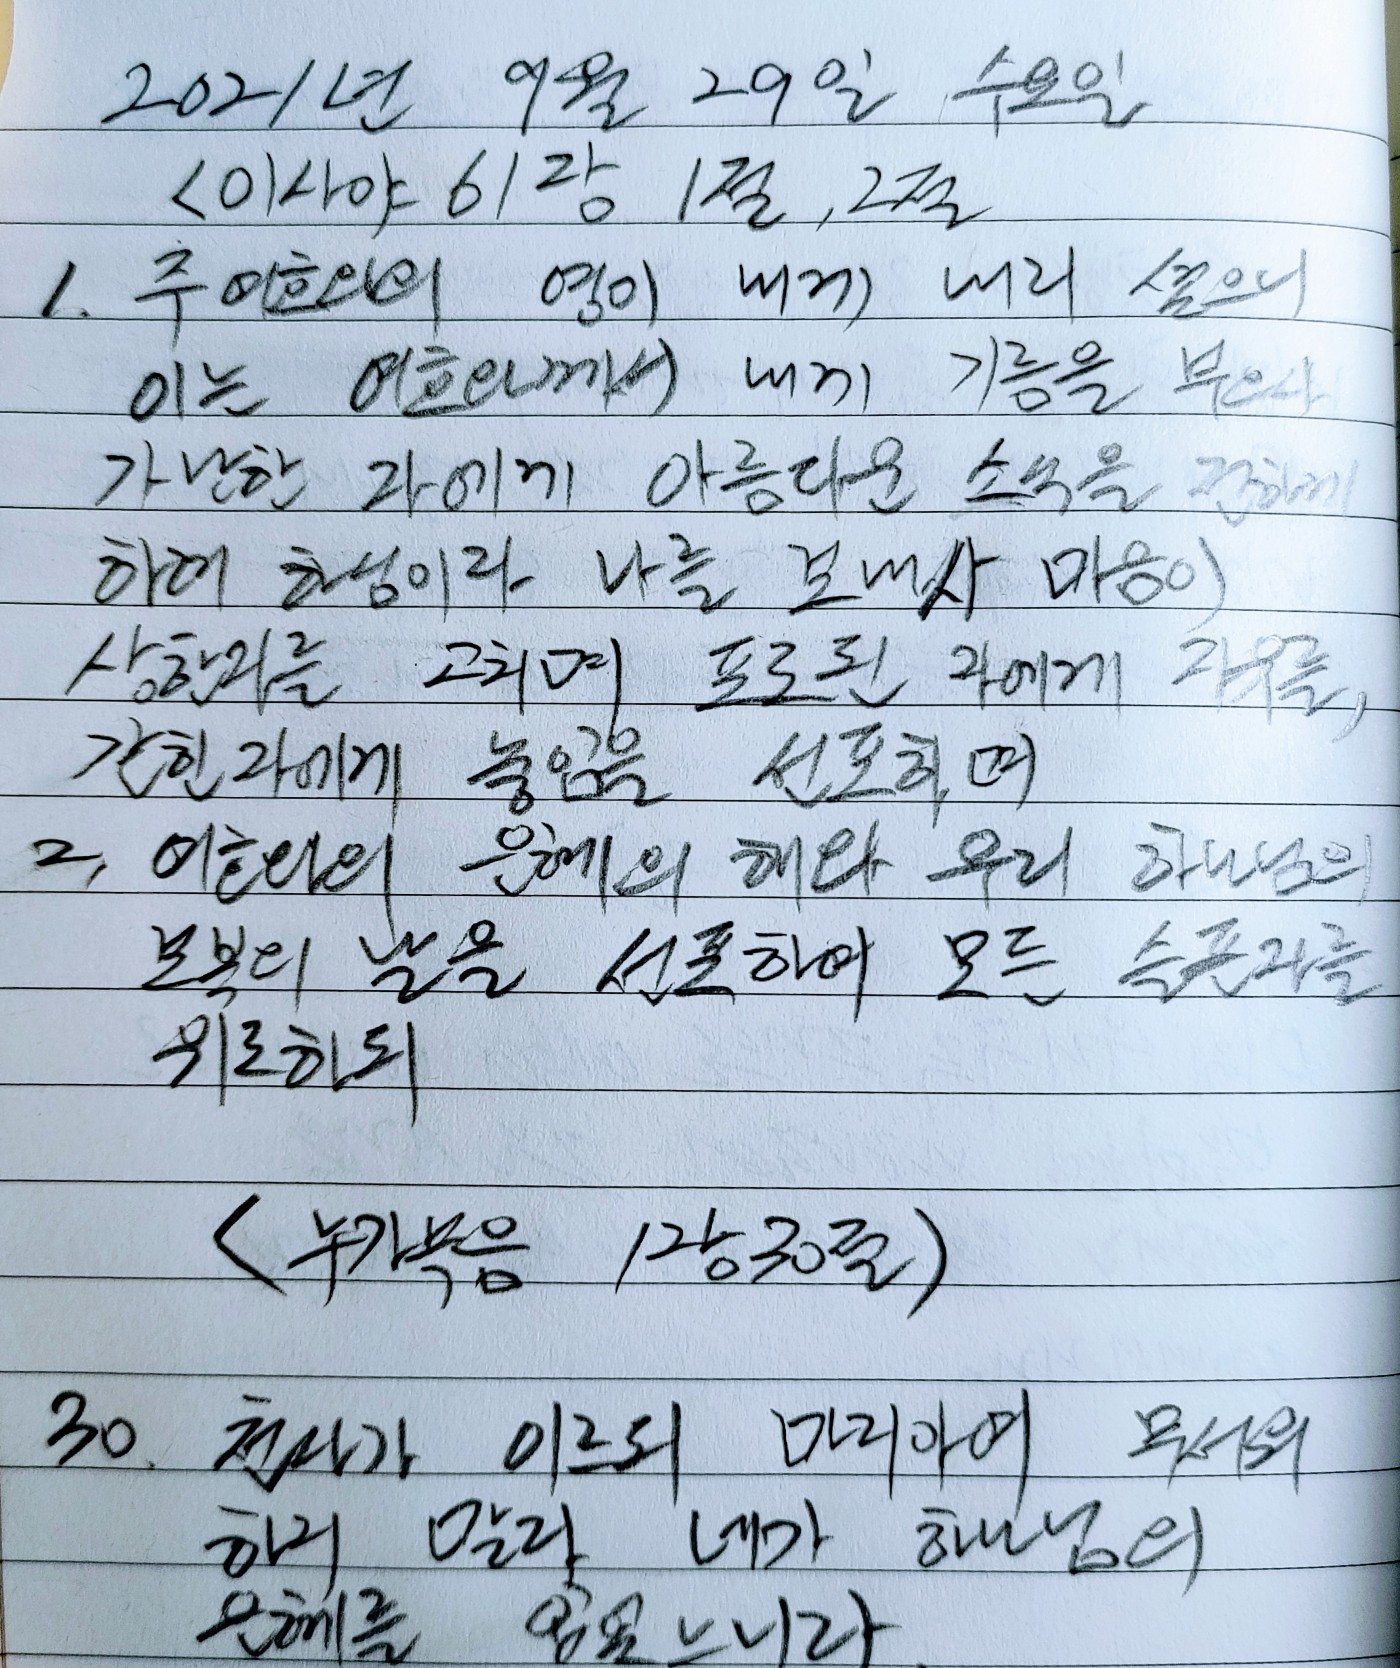 2021년 9월 29일 수요일
<이사야 61장 1절, 2절
1. 주 여호와의 영이 내게 내리셨으니
이는 여호와께서 내게 기름을 부으사
가난한 자에게 아름다운 소식을 전하게
하려 하심이라 나를 보내사 마음이
상한자를 고치며 포로된 자에게 자유를,
갇힌자에게 놓임을 선포하며
2, 여호와의 은혜의 해와 우리 하나님의
보복의 날을 선포하여 모든 슬픈자를
위로하되
<누가복음 1장 30절)
30. 천사가 이르되 마리아여 무서워
하지 말라 네가 하나님의
은혜를 입었느니라.